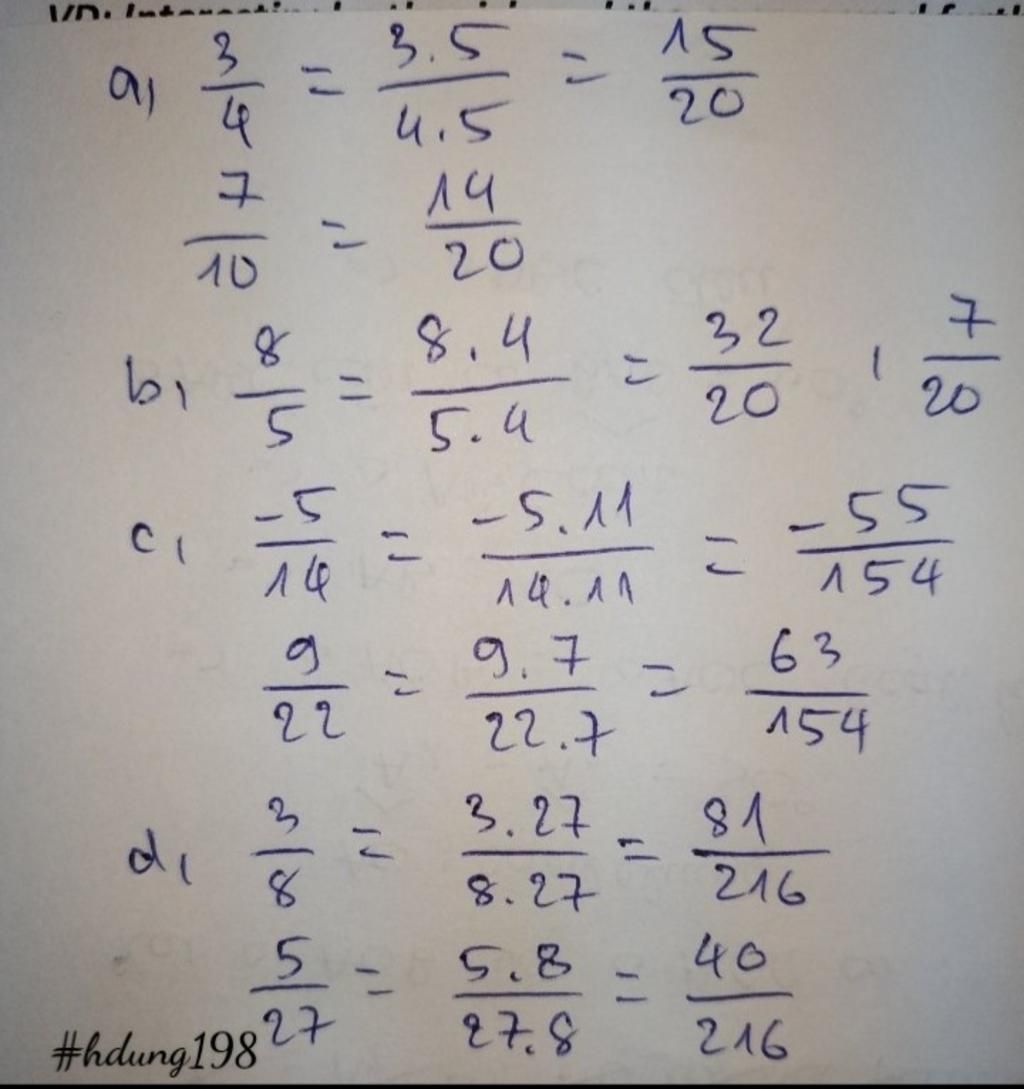 a, 3/4 = 3.5/4.5 = 15/20
7/10 = 14/20
b, 8/5 = 8.4/5.4 = 32/20 , 7/20
c, -5/14 = -5.11/14.11 = -55/154
9/22 = 9.7/22.7 = 63/154
d, 3/8 = 3.27/8.27 = 81/216
5/27 = 5.8/27.8 = 40/216
#hdung198